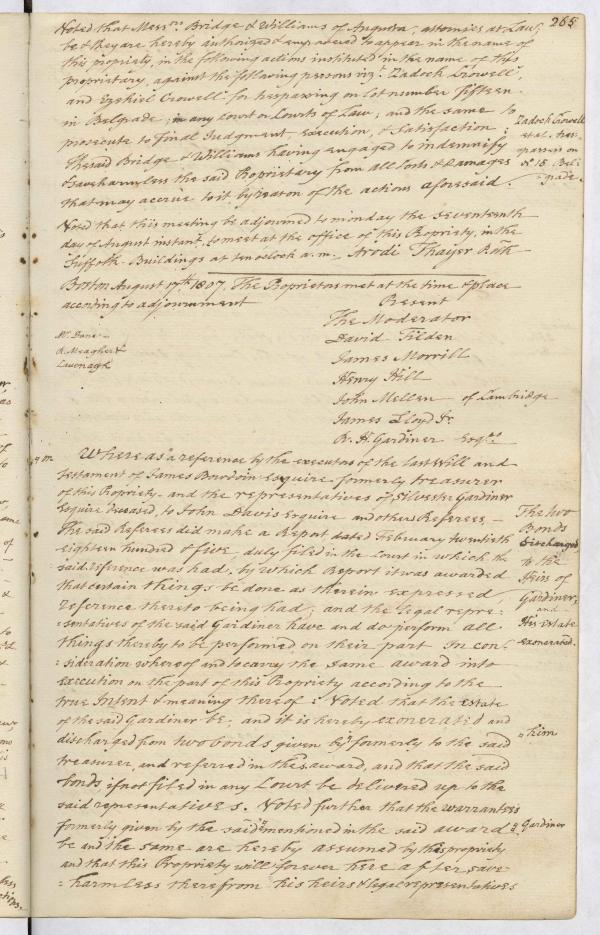 265
Voted that Messrs. Bridge & Williams of Augusta, attornies at Law,
be & they are hereby authorized & empowered to appear in the name of
this propriety, in the following actions instituted in the name of this
Propriety, against the following persons viz: Zadoch Crowell,
and Ezekiel Crowell for trespassing on lot number fifteen
in Belgrade, in any court or Courts of Law, and the same to
prosecute to Final Judgment, execution, & Satisfaction:
The said Bridge & Williams having engaged to indemnify
& save harmless the said Propriety from all Costs & Damages
that may accrue to it by reason of the actions aforesaid.
Zadoch Crowell
et al. tres-
passers on
N. 15. Bel:
=grade.
Voted that this meeting be adjourned to monday the seventeenth
day of August instant, to meet at the office of this Propriety, in the
Suffolk-Buildings at ten oclock a.m. Arodi Thayer Clerk
Boston August 17th. 1807. The Proprietors met at the time & place
according to adjournment
Present
The Moderator
David Tilden
James Morrill
Henry Hill
John Mellen - of Cambridge
James Lloyd Jr.
R. H. Gardiner Esqrs.
Mr. Dane
R. Meagher &
Cavenagh
Whereas a reference by the executors of the last Will and
testament of James Bowdoin Esquire formerly treasurer
of this Propriety - and the representatives of Silvester Gardiner
Esquire deceased, to John Davis Esquire and others Referees, -
The said Referees did make a Report dated February twentieth
eighteen hundred & five duly filed in the Court in which the
said reference was had. by which Report it was awarded
that certain things be done as therein expressed
reference thereto being had; and the legal repre:
sentatives of the said Gardiner have and do perform all
things thereby to be performed on their part In con:
:sideration whereof and to carry the same award into
execution on the part of this Propriety according to the
true Intent & meaning thereof: Voted that the Estate
of the said Gardiner be, and it is hereby exonerated and
discharged from two bonds given by " formerly to the said
treasurer, and referred in the award, and that the said
bonds if not filed in any Court be delivered up to the
said representatives. Voted further that the warrantees
formerly given by the said " mentioned in the said award
be and the same are hereby assumed by this propriety
and that this Propriety will forever hereafter save
=harmless therefrom his heirs & legal representatives
The two
Bonds
discharged
to the
Heirs of
Gardiner,
and
His Estate
exonerated.
" him
" Gardiner